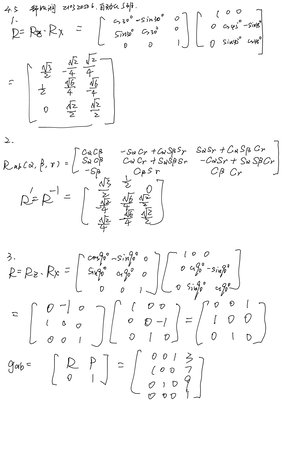 4.3
1.
R = Rz · Rx = [ cos30° -sin30° 0 ] [ 1 0 0 ]
[ sin30° cos30° 0 ] [ 0 cos45° -sin45° ]
[ 0 0 1 ] [ 0 sin45° cos45° ]
= [ √3/2 -√2/4 √2/4 ]
[ 1/2 √6/4 -√6/4 ]
[ 0 √2/2 √2/2 ]
2.
(α, β, γ) = [ CαCβ -SαCr + CαSβSr SαSr + CαSβCr ]
[ SαCβ CαCr + SαSβSr -CαSr + SαSβCr ]
[ -Sβ CβSr CβCr ]
R' = R⁻¹ = [ √3/2 1/2 0 ]
[ -√2/4 √6/4 √2/2 ]
[ √2/4 -√6/4 √2/2 ]
3.
R = Rz · Rx = [ cos90° -sin90° 0 ] [ 1 0 0 ]
[ sin90° cos90° 0 ] [ 0 cos90° -sin90° ]
[ 0 0 1 ] [ 0 sin90° cos90° ]
= [ 0 -1 0 ] [ 1 0 0 ] = [ 0 0 1 ]
[ 1 0 0 ] [ 0 0 -1 ] [ 1 0 0 ]
[ 0 0 1 ] [ 0 1 0 ] [ 0 1 0 ]
gab = [ R P ] = [ 0 0 1 3 ]
[ 0 1 ] [ 1 0 0 7 ]
[ 0 1 0 9 ]
[ 0 0 0 1 ]